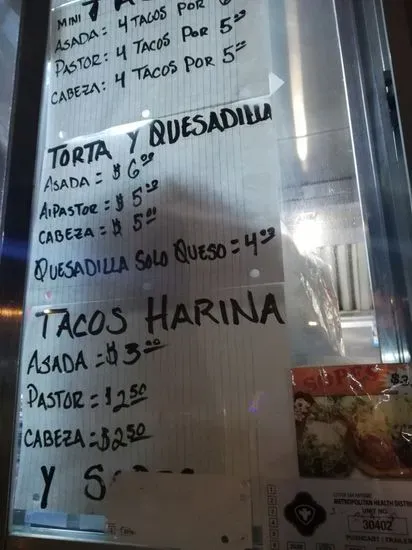 MINI
ASADA: 4 TACOS POR
PASTOR: 4 TACOS POR 5.00
CABEZA: 4 TACOS POR 5.00
TORTA Y QUESADILLA
ASADA = $ 6.00
AlPASTOR = $ 5.00
CABEZA = $ 5.00
QUESADILLA SOLO QUESO = 4.00
TACOS HARINA
ASADA = $ 3.00
PASTOR = $2.50
CABEZA = $2.50
Y
SOPES $3
METROPOLITAN HEALTH DISTRI
UNIT NO
30402
PUSHCART TRAILER